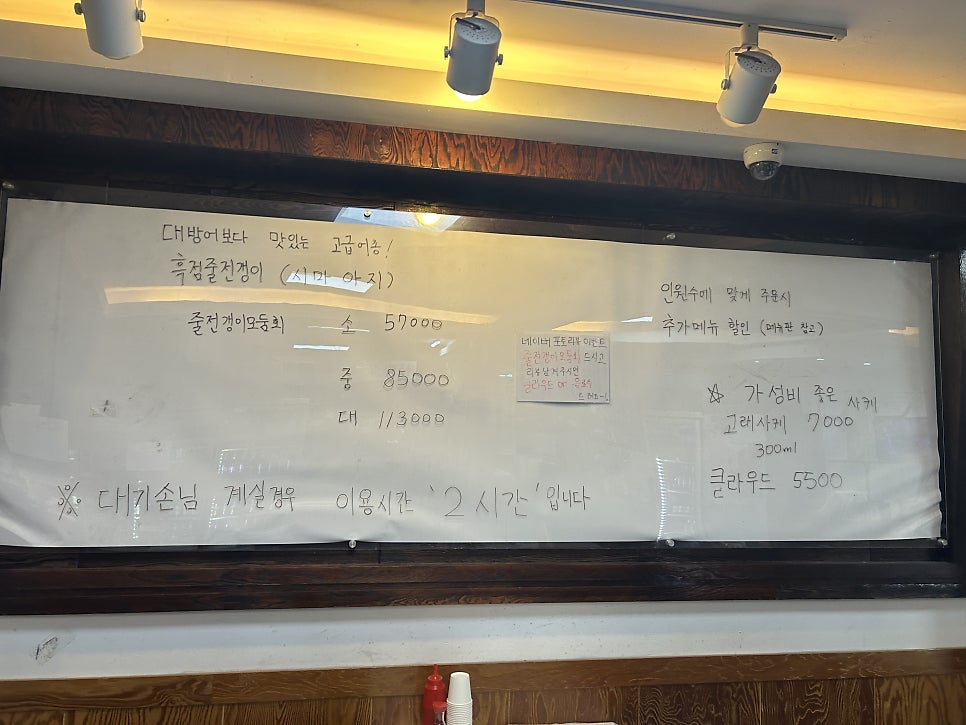 대방어보다 맛있는 고급어종!
흑점줄전갱이 (시마 아지)
줄전갱이모둠회 소 57000
중 85000
대 113000
※ 대기손님 계실경우 이용시간 '2시간'입니다
네이버 포토리뷰 이벤트
줄전갱이모둠회 드시고
리뷰남겨주시면
클라우드 or 음료수
인원수에 맞게 주문시
추가메뉴 할인 (메뉴판 참고)
☆ 가성비 좋은 사케
고래사케 7000
300ml
클라우드 5500